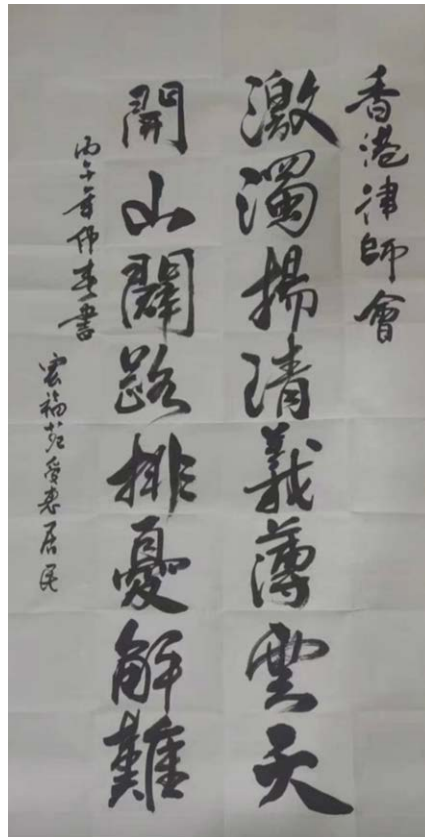 香港律師會
激濁揚清義薄雲天
開山闢路排憂解難
丙午年仲春書
宏福苑受惠居民